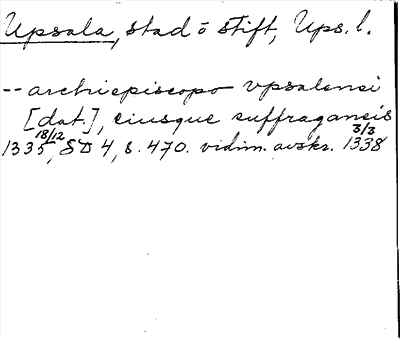 Upsala, stad o stift, Ups. l.
-- archiepiscopo vpsalensi
[dat.], eiusque suffraganeis
1335 18/12, SD 4, s. 470. vidim. avskr. 1338 3/3